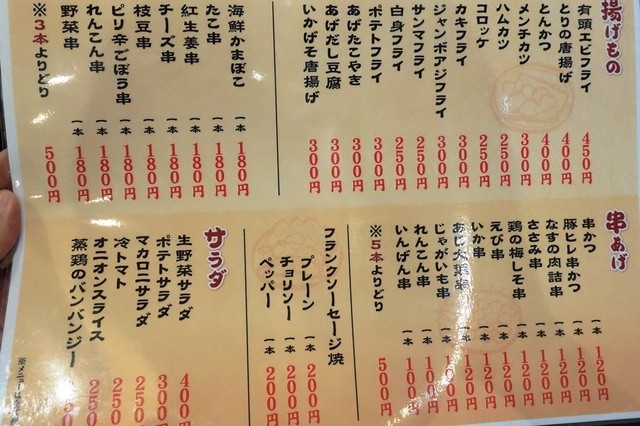 揚げもの
有頭エビフライ 450円
とりの唐揚げ 400円
とんかつ 400円
メンチカツ 300円
ハムカツ 250円
コロッケ 250円
カキフライ 300円
ジャンボアジフライ 300円
サンマフライ 250円
白身フライ 250円
ポテトフライ 300円
あげたこやき 300円
あげだし豆腐 300円
いかげそ唐揚げ 300円
海鮮かまぼこ 一本 180円
たこ串 一本 180円
紅生姜串 一本 180円
チーズ串 一本 180円
枝豆串 一本 180円
ピリ辛ごぼう串 一本 180円
れんこん串 一本 180円
野菜串 一本 180円
※3本よりどり 500円
串あげ
串かつ 一本 120円
豚ヒレ串かつ 一本 120円
なすの肉詰串 一本 120円
ささみ串 一本 120円
鶏の梅しそ串 一本 120円
えび串 一本 120円
いか串 一本 120円
あじ大葉串 一本 120円
じゃがいも串 一本 100円
れんこん串 一本 100円
いんげん串 一本 100円
※5本よりどり 500円
フランクソーセージ焼
プレーン 一本 200円
チョリソー 一本 200円
ペッパー 一本 200円
サラダ
生野菜サラダ 400円
ポテトサラダ 300円
マカロニサラダ 250円
冷トマト 250
オニオンスライス 250
蒸鶏のバンバンジー
※メニュー